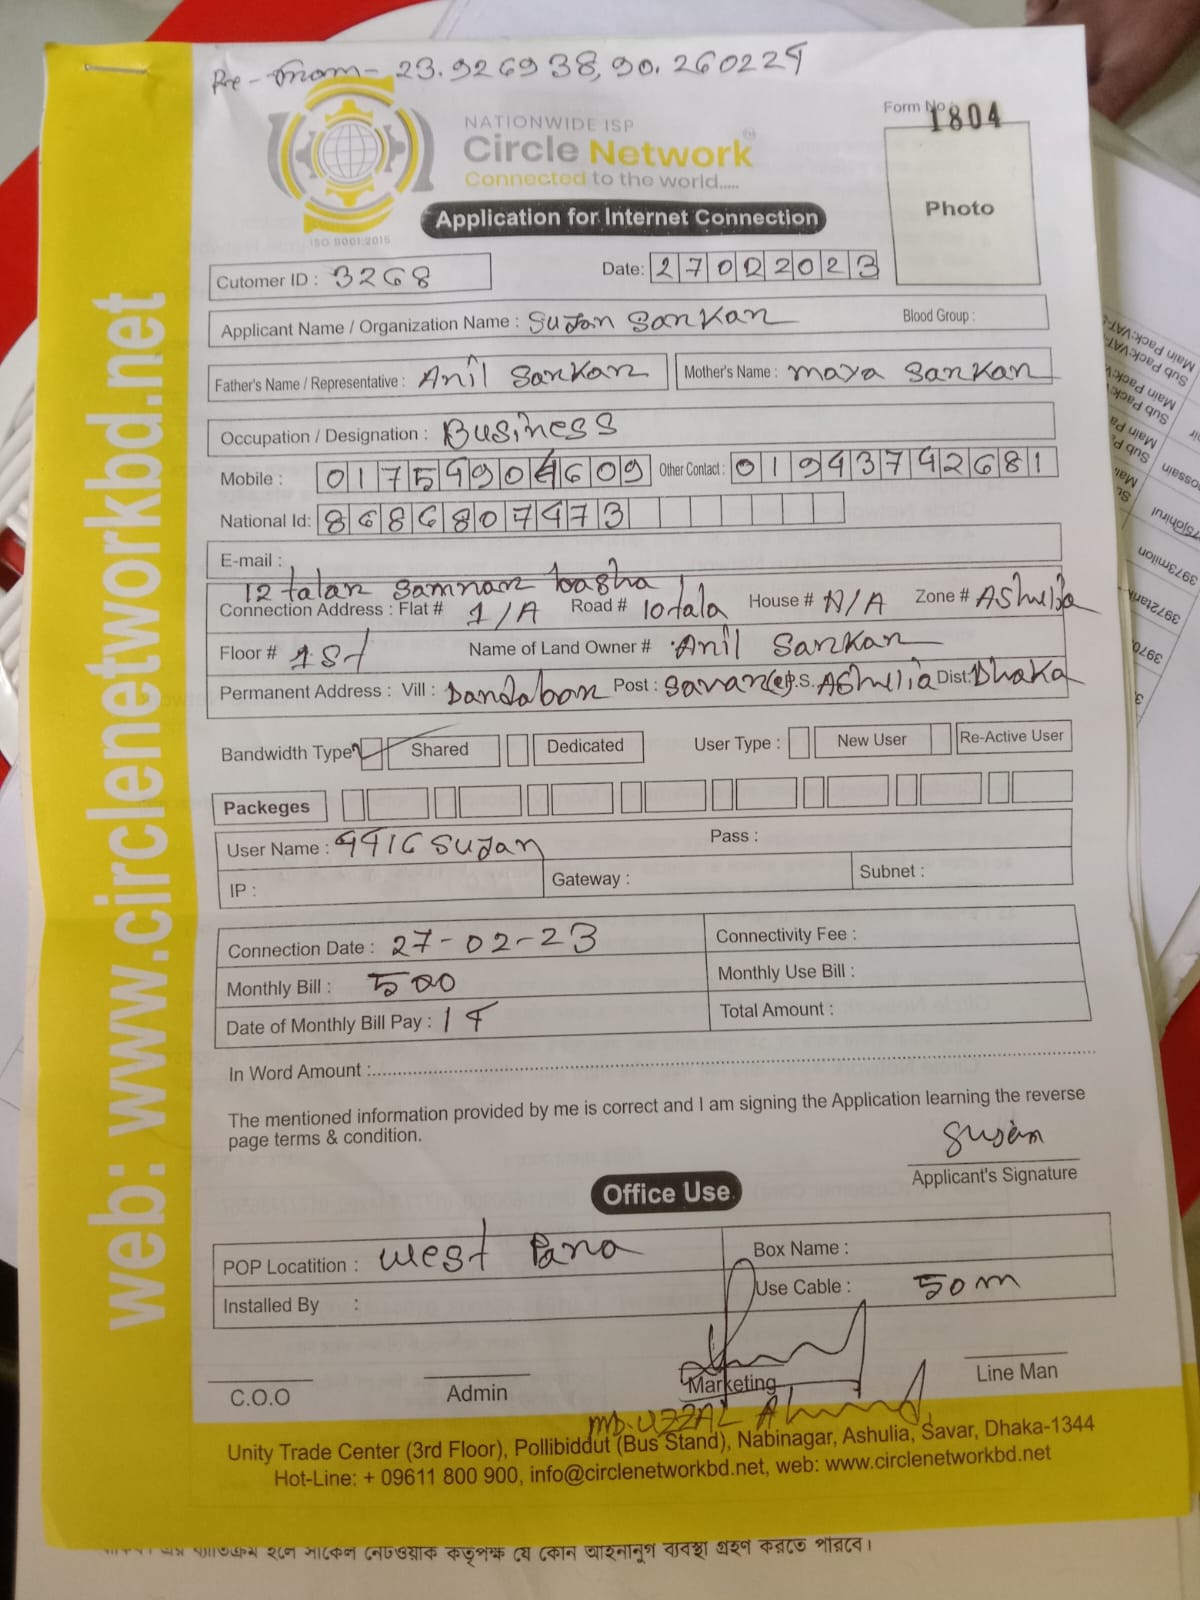 Pre - 23.926938, 90.260229
Form No 1804
NATIONWIDE ISP
Circle Network
Connected to the world.....
ISO 9001:2015
Photo
Application for Internet Connection
Cutomer ID : 3268 Date: 27022023
Applicant Name / Organization Name : Sujan Sarkar Blood Group :
Father's Name / Representative : Anil Sarkar Mother's Name : maya Sarkar
Occupation / Designation : Business
Mobile : 01759904609 Other Contact : 01943742681
National Id: 8686807473
E-mail :
12 talar samnar basha
Connection Address : Flat # 1/A Road # 10tala House # N/A Zone # AShulia
Floor # 1st Name of Land Owner # Anil Sarkar
Permanent Address : Vill : Dandabor Post : Savar P.S. AShulia Dist: Dhaka
Bandwidth Type Shared Dedicated User Type : New User Re-Active User
Packeges
User Name : 9916 Sujan Pass :
IP : Gateway : Subnet :
Connection Date : 27-02-23 Connectivity Fee :
Monthly Bill : 500 Monthly Use Bill :
Date of Monthly Bill Pay : Total Amount :
In Word Amount :
The mentioned information provided by me is correct and I am signing the Application learning the reverse
page terms & condition.
Susan
Applicant's Signature
Office Use
POP Locatition : west Para Box Name :
Installed By : Use Cable : 50m
C.O.O Admin Marketing Line Man
MD. UZZAL Ahmed
Unity Trade Center (3rd Floor), Pollibiddut (Bus Stand), Nabinagar, Ashulia, Savar, Dhaka-1344
Hot-Line: + 09611 800 900, info@circlenetworkbd.net, web: www.circlenetworkbd.net
web: www.circlenetworkbd.net
হলে সার্কেল নেটওয়ার্ক কতৃপক্ষ যে কোন আইনানুগ ব্যবস্থা গ্রহণ করতে পারবে।